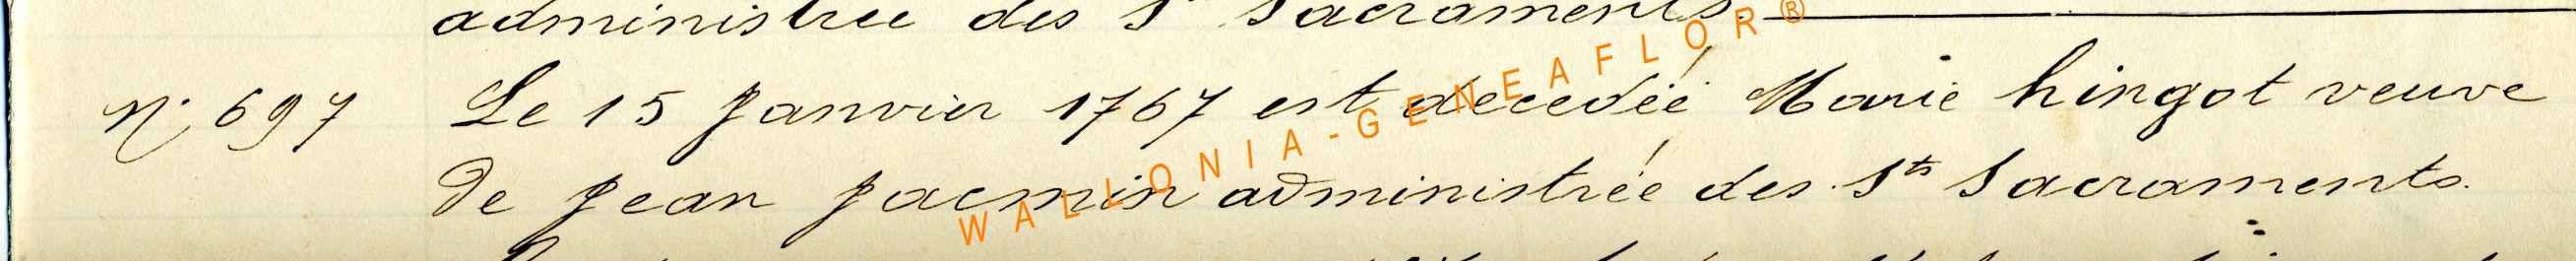 administrée des Sts Sacraments.
N° 697 Le 15 Janvier 1767 est décedéé Marie hingot veuve
de Jean Jacmin administrée des Sts Sacraments.
WALLONIA-GENEAFLOR®